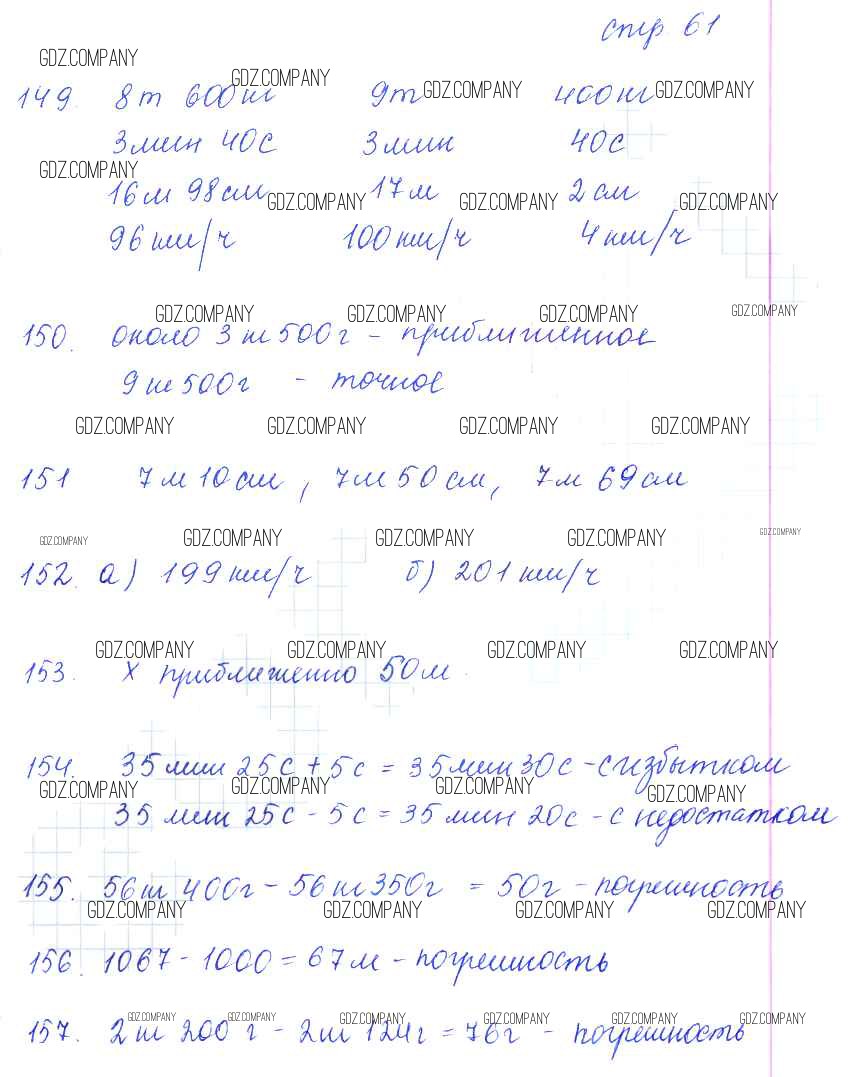 стр. 61
GDZ.COMPANY
GDZ.COMPANY
149. 8т 600кг 9т GDZ.COMPANY 400кг GDZ.COMPANY
3мин 40с 3мин 40с
GDZ.COMPANY
16м 98см GDZ.COMPANY 17м GDZ.COMPANY 2см GDZ.COMPANY
96км/ч 100км/ч 4км/ч
GDZ.COMPANY GDZ.COMPANY GDZ.COMPANY GDZ.COMPANY
150. около 3кг 500г - приближенное
9кг 500г - точное
GDZ.COMPANY GDZ.COMPANY GDZ.COMPANY GDZ.COMPANY
151 7м 10см, 7м 50см, 7м 69см
GDZ.COMPANY GDZ.COMPANY GDZ.COMPANY GDZ.COMPANY GDZ.COMPANY
152. а) 199км/ч б) 201км/ч
GDZ.COMPANY GDZ.COMPANY GDZ.COMPANY GDZ.COMPANY
153. х приближенно 50м.
154. 35мин 25с + 5с = 35мин 30с - с избытком
GDZ.COMPANY GDZ.COMPANY GDZ.COMPANY GDZ.COMPANY
35мин 25с - 5с = 35мин 20с - с недостатком
155. 56кг 400г - 56кг 350г = 50г - погрешность
GDZ.COMPANY GDZ.COMPANY GDZ.COMPANY GDZ.COMPANY
156. 1067 - 1000 = 67м - погрешность
GDZ.COMPANY GDZ.COMPANY GDZ.COMPANY GDZ.COMPANY GDZ.COMPANY GDZ.COMPANY
157. 2кг 200г - 2кг 124г = 76г - погрешность